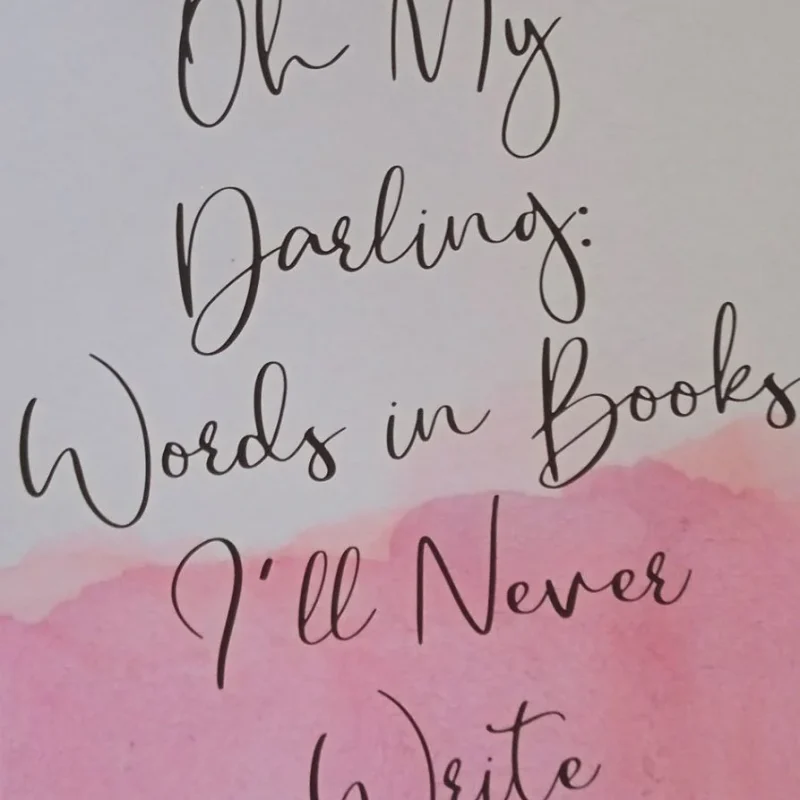 Oh My
Darling:
Words in Books
I'll Never
Write